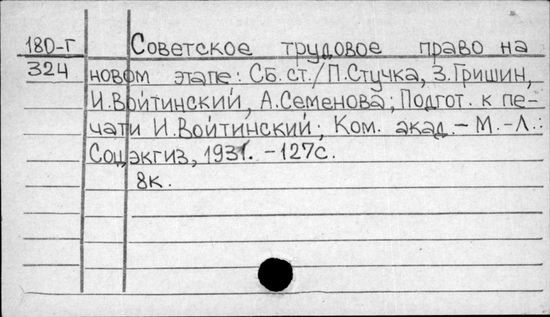 180-Г Советское трудовое право на
324 новом этапе: Сб. ст./П.Стучка, З.Гришин,
И.Войтинский, А.Семенова; Подгот. к пе-
чати И.Войтинский; Ком. акад. - М.-Л.:
Соцэкгиз, 1931. - 127с.
8к.